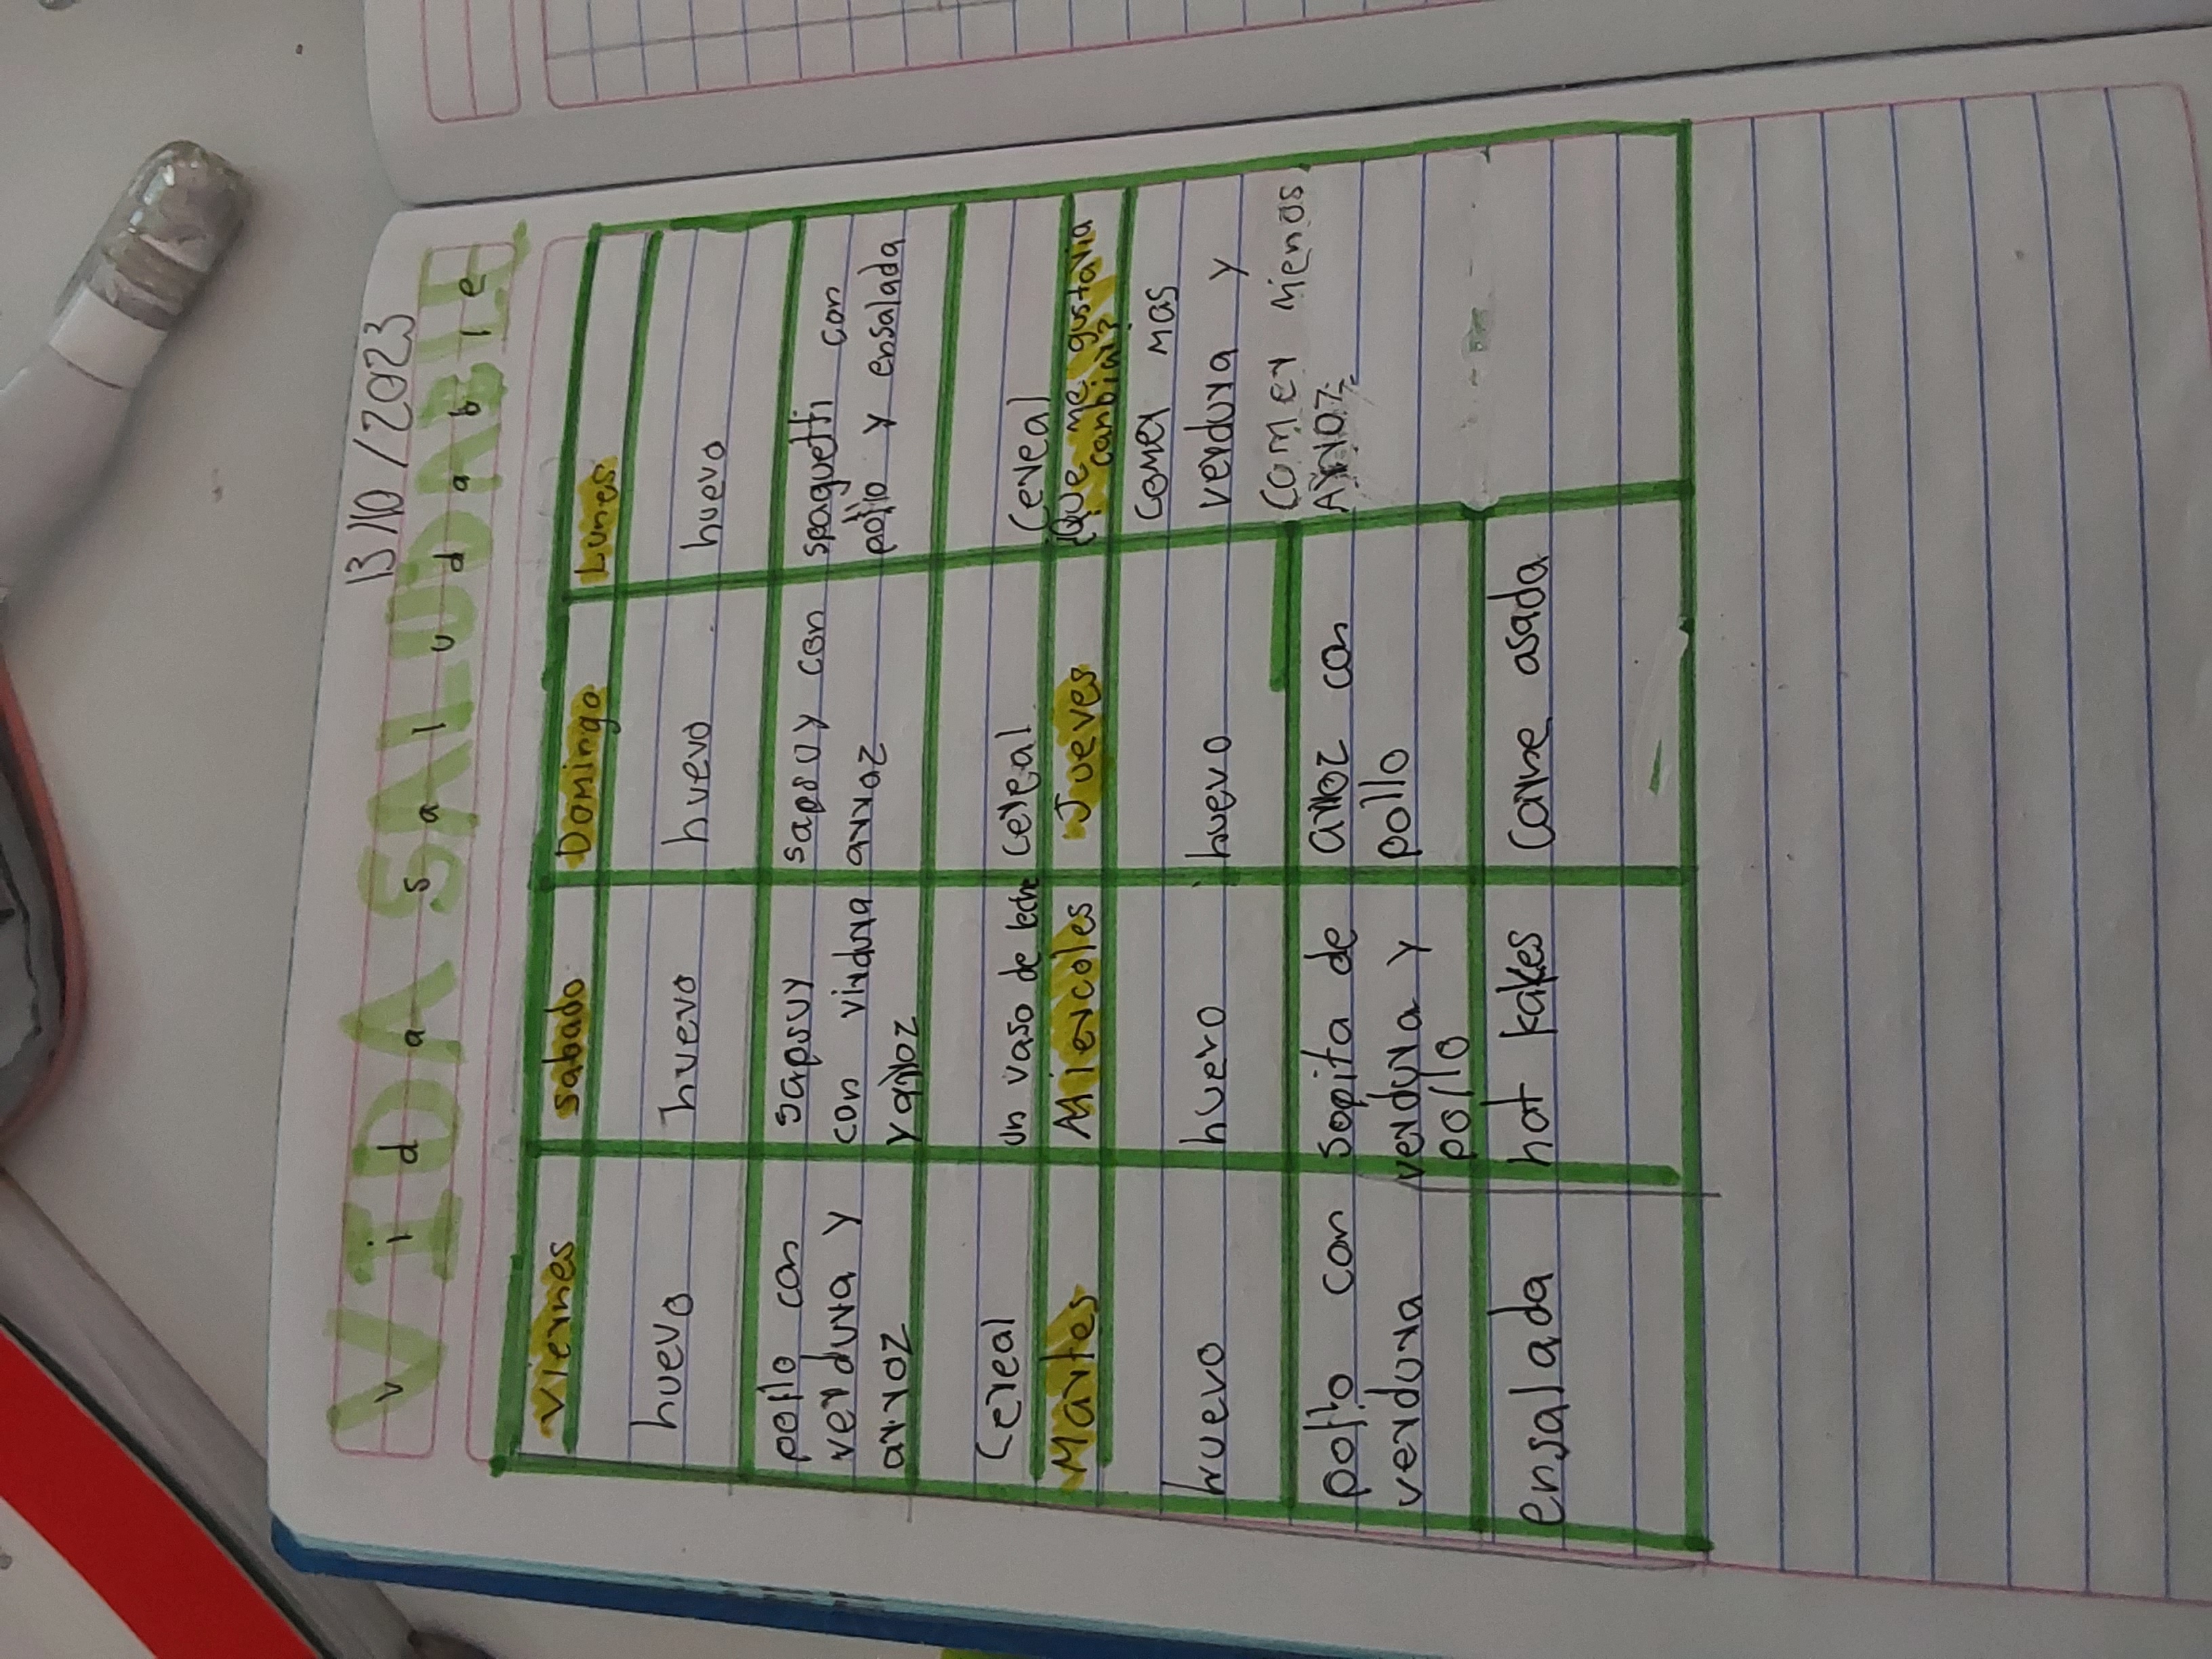 13/10/2023
VIDA SALUDABLE
vida saludable
Viernes
sabado
Domingo
Lunes
huevo
huevo
huevo
huevo
pollo con
verdura y
arroz
sapsuy
con virdura
y arroz
sapsuy con
arroz
spaguetti con
pollo y ensalada
Cereal
un vaso de leche
cereal
Cereal
Martes
Miercoles
Jueves
¿Que me gustaria
cambiar?
huevo
huevo
huevo
comer mas
verdura y
comer menos
Arroz
pollo con
verdura
sopita de
verdura y
pollo
arroz con
pollo
ensalada
hot kakes
Carne asada